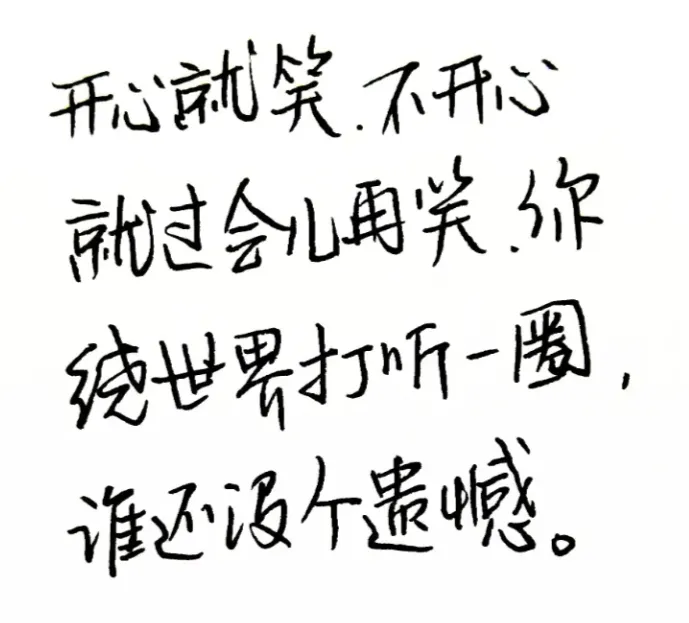 开心就笑.不开心
就过会儿再笑.你
绕世界打听一圈，
谁还没个遗憾。